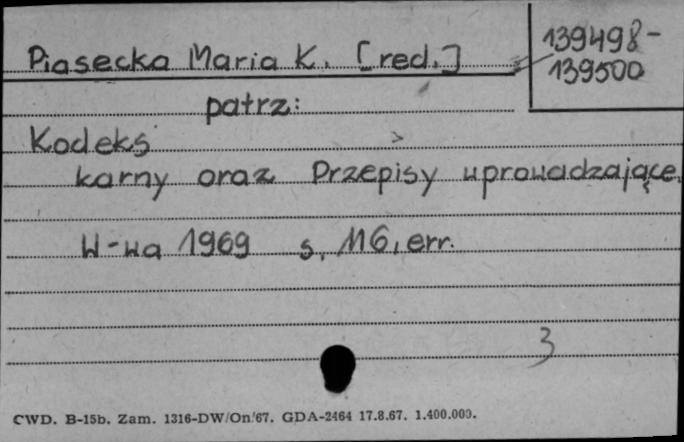 Piasecka Maria K. [red.]
139498-
139500
patrz:
Kodeks
karny oraz Przepisy wprowadzające.
W-wa 1969 s. 116, err.
3
CWD. B-15b. Zam. 1316-DW/On/67. GDA-2464 17.8.67. 1.400.000.